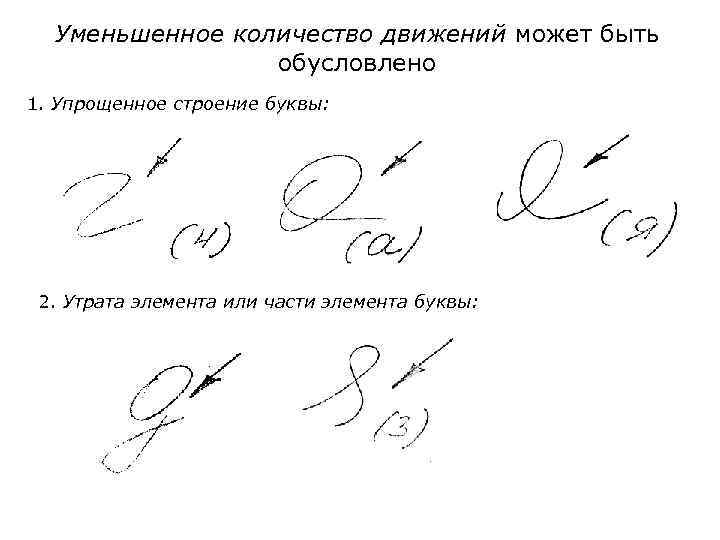 Уменьшенное количество движений может быть
обусловлено
1. Упрощенное строение буквы:
(н) (а) (я)
2. Утрата элемента или части элемента буквы:
(з)